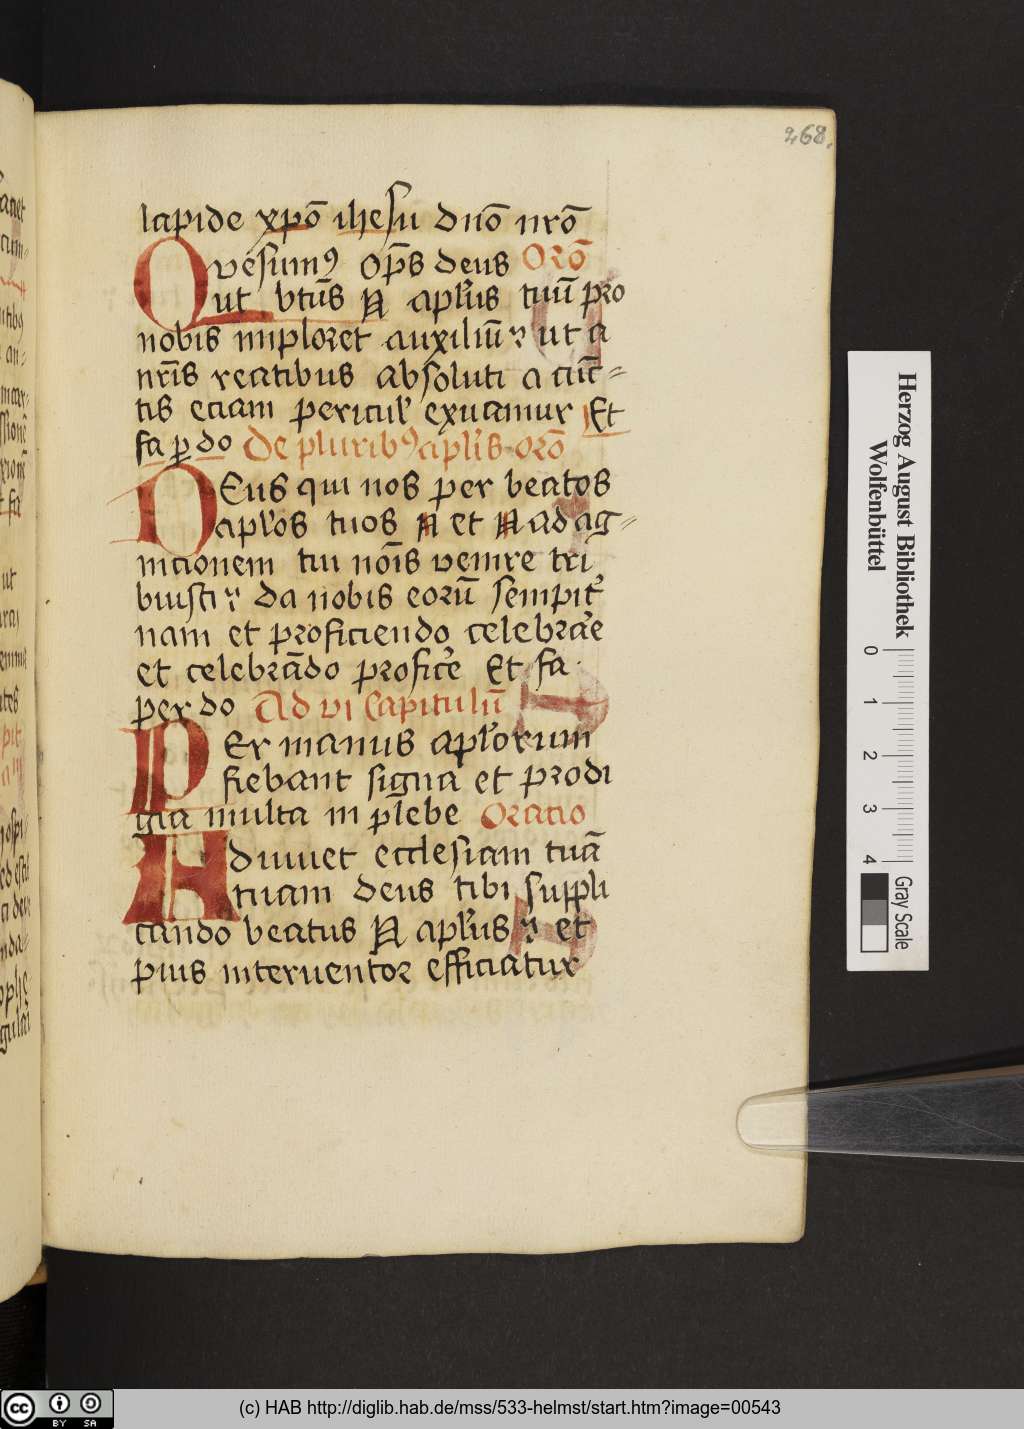 268.
lapide xpō ihesu dn̄o nr̄o
Qvesumꝰ op̄s deus Orō
ut bt̄us N apl̄us tuū pro
nobis imploret auxiliū ut a
nr̄is reatibus absoluti a cūc
tis eciam pericul' exuamur Et
fa ꝑ do De pluribꝰ apl̄is orō
DEus qui nos per beatos
apl̄os tuos N et N ad ag
nicionem tui nōis venire tri
buisti da nobis eorū sempit'
nam et proficiendo celebrar̄e
et celebrādo profic̄e Et fa
per do Ad vi Capitulū
PEr manus apl̄orum
fiebant signa et prodi
gia multa in plebe Oratio
Adiuuet ecclesiam tuā
tuam deus tibi suppli
cando beatus N apl̄us et
pius interuentor efficiatur
Herzog August Bibliothek
Wolfenbüttel
0 1 2 3 4
Gray Scale
cc BY SA
(c) HAB http://diglib.hab.de/mss/533-helmst/start.htm?image=00543